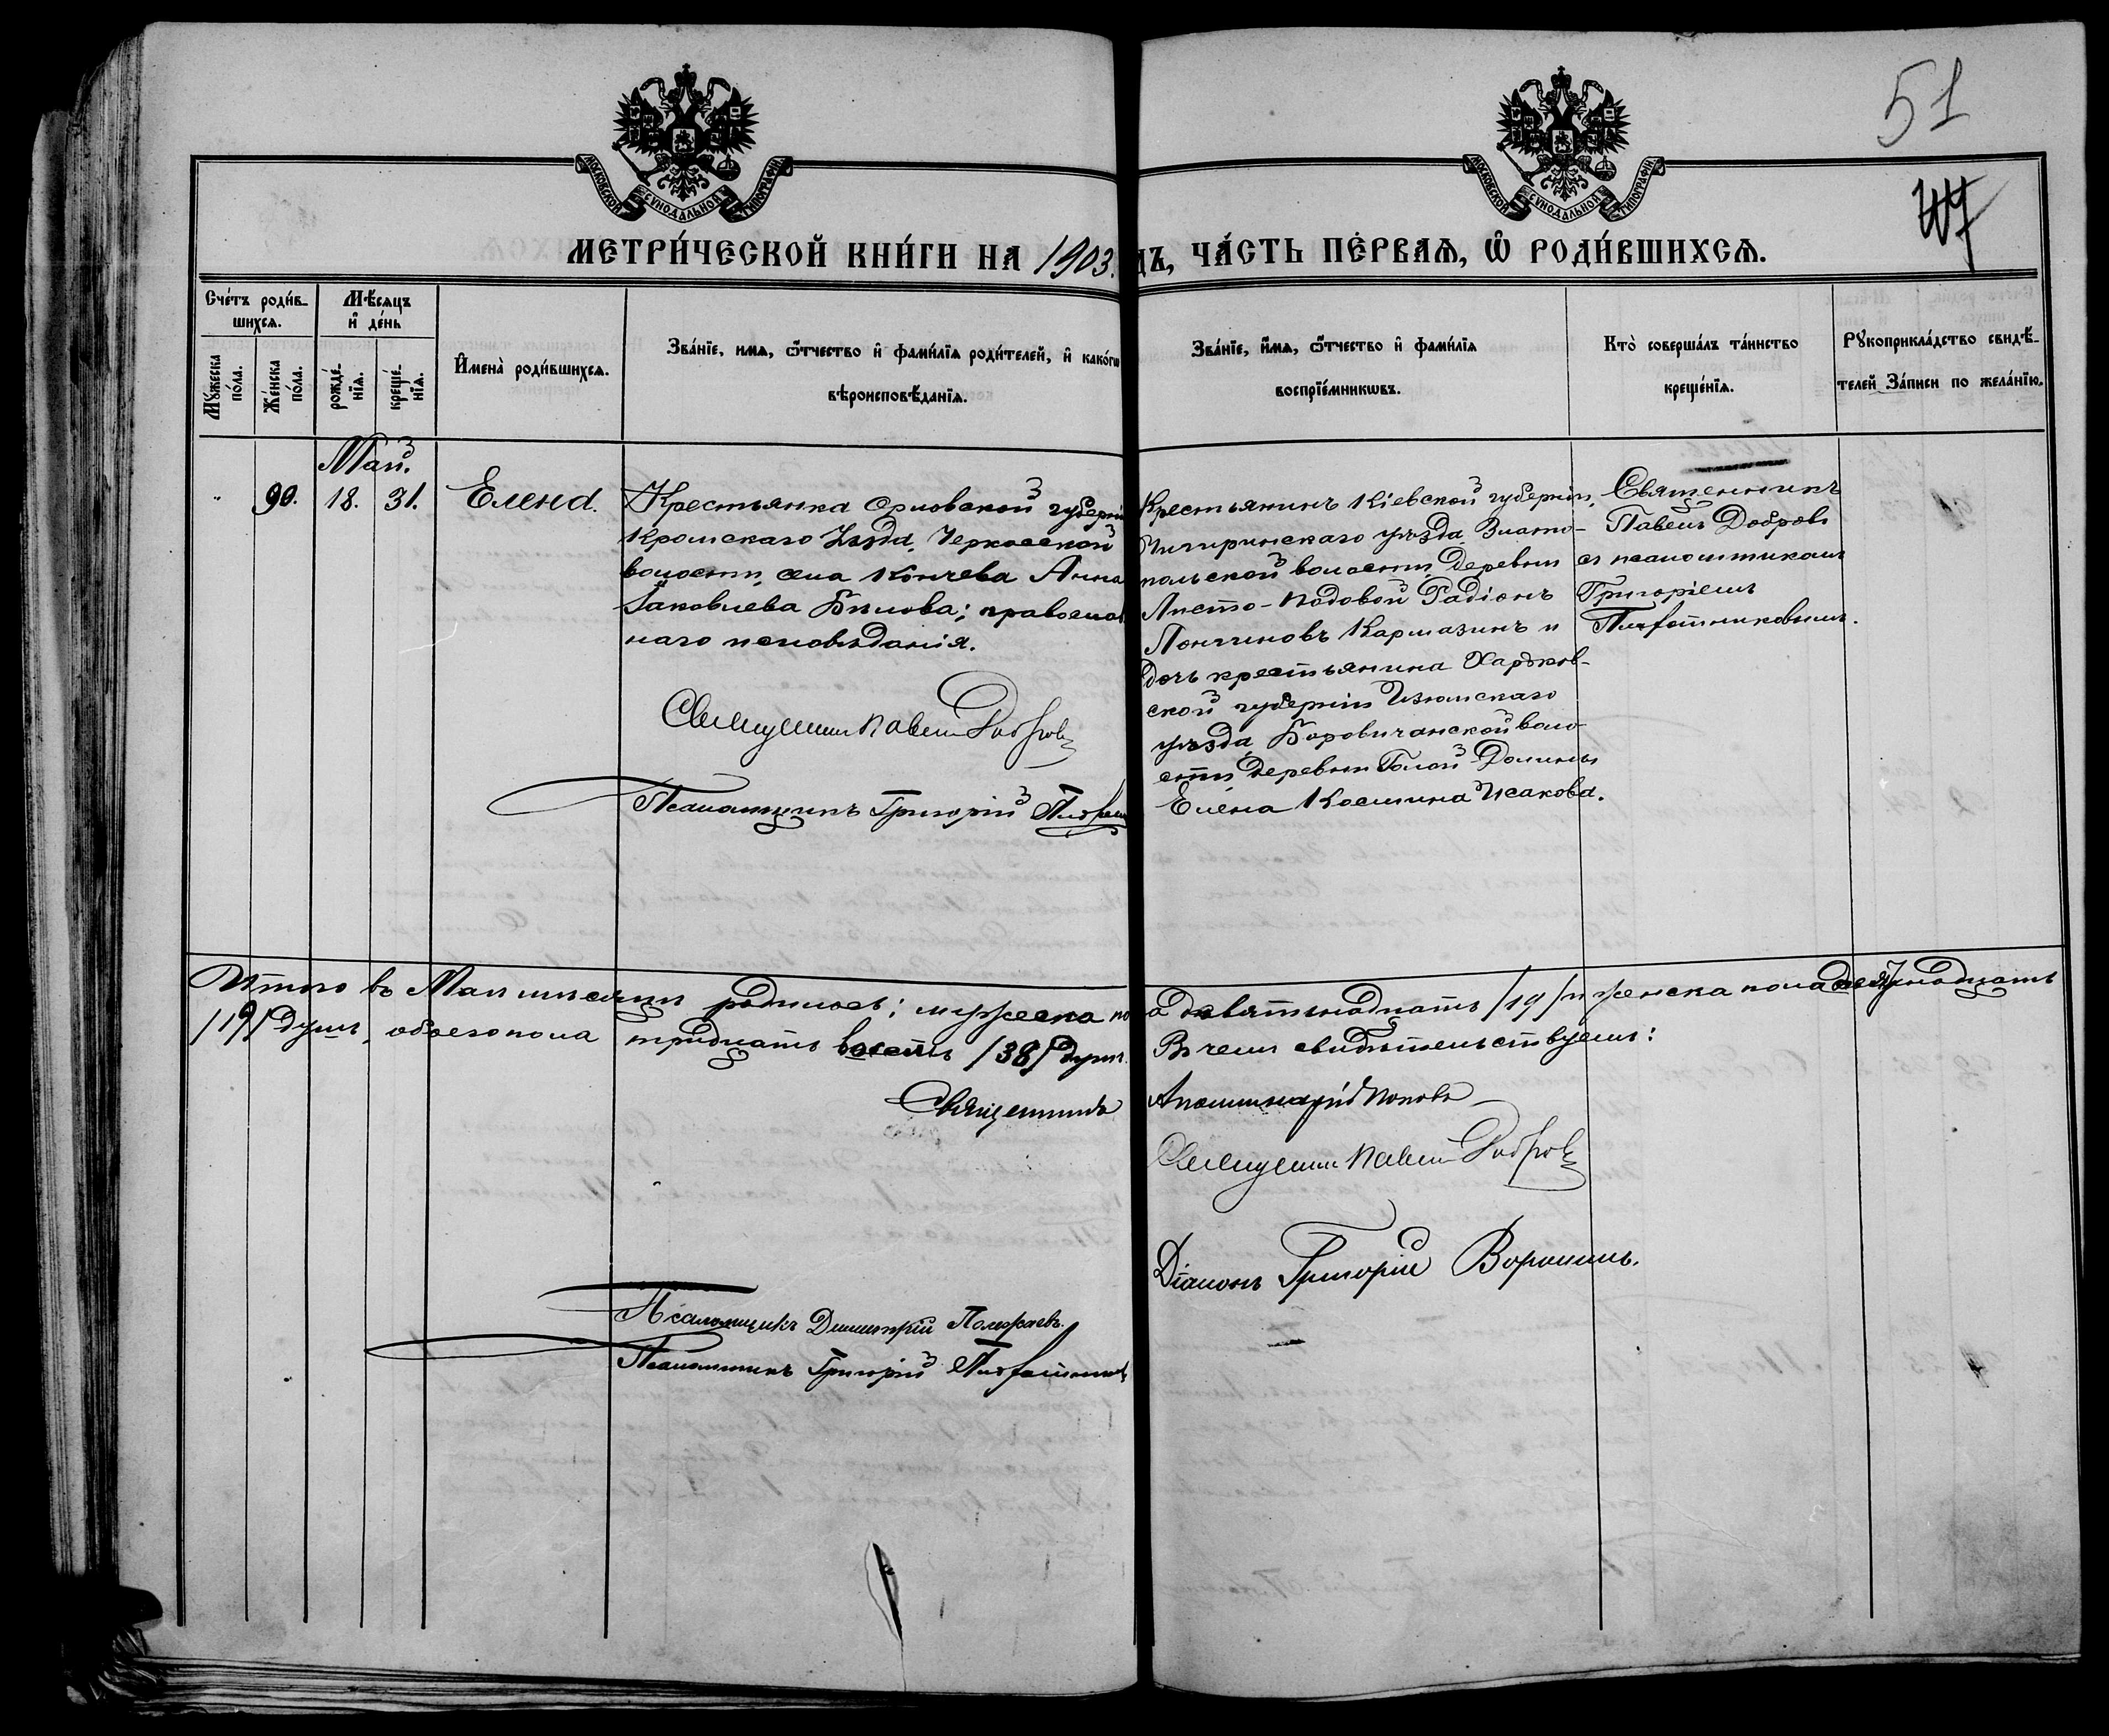 51
МОСКОВСКОЙ СУНОДАЛЬНОЙ ТИПОГРАФІИ
МОСКОВСКОЙ СУНОДАЛЬНОЙ ТИПОГРАФІИ
МЕТРИ́ЧЕСКОЙ КНИ́ГИ НА 1903. ДЪ, ЧА́СТЬ ПЕ́РВАѦ, Ѡ РОДИ́ВШИХСѦ.
Сче́тъ роди́в-
шихсѧ.
Мꙋ́жеска по́ла.
Же́нска по́ла.
Мѣ́сѧцъ
и де́нь
рожде́-
нїѧ.
креще́-
нїѧ.
Имена̀ роди́вшихсѧ.
Зва́нїе, имѧ, ѻ҆́тчество и҆ фами́лїѧ роди́телей, и҆ како́гѡ
вѣроисповѣ́данїѧ.
Зва́нїе, и҆́мѧ, ѻ҆́тчество и҆ фами́лїѧ
воспрїе́мникѡвъ.
Кто̀ соверша́лъ та́инство
креще́нїѧ.
Рꙋкоприкла́дство свидѣ́-
телей За́писи по жела́нїю.
Май.
90. 18. 31. Елена.
Крестьянка Орловской губерні
Кромскаго уѣзда, Черкосской
волости, села Кончева Анна
Іаковлева Билова; православ
наго исповѣданія.
Священник Павелъ Добровъ
Псаломщикъ Григорій
Крестьянинъ Кіевской губерніи,
Чигиринскаго уѣзда Злато-
польской волости, деревни
Листо-подовой Радіонъ
Лонгиновъ Кармазинъ и
дочь крестьянина Харьков-
ской губерніи Изюмскаго
уѣзда, Боровичанской воло-
сти, деревни Голой-Долины
Елена Косьмина Исакова.
Священникъ
Павелъ Добровъ
съ псаломщикомъ
Григоріемъ
Итого въ Маи мѣсяцѣ родилось: мужеска по а девятьнадцать /19/ и женска пола девятьнадцать
/19/ душъ, обоего пола тридцать восемь /38/ душъ. Въ чемъ свидѣтельствуемъ:
Священникъ Аполлинарій Поповъ
Священник Павелъ Добровъ
Діаконъ Григорій Воронинъ.
Псаломщикъ Димитрій
Псаломщикъ Григорій